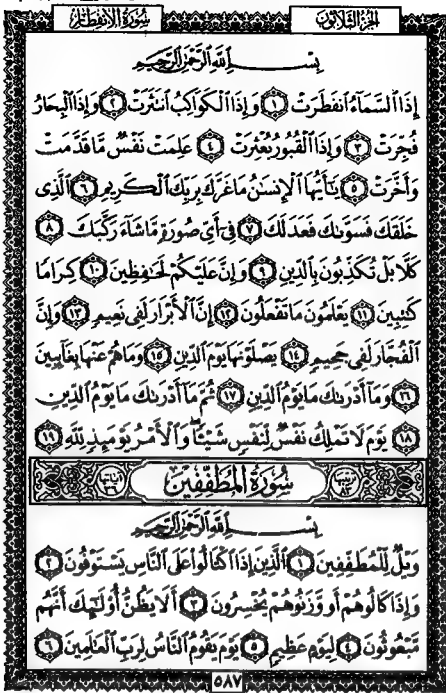 سُورَةُ الْانفِطَارِ الجُزْءُ الثَّلَاثُونَ
بِسْمِ اللَّهِ الرَّحْمَٰنِ الرَّحِيمِ
إِذَا السَّمَاءُ انفَطَرَتْ ١ وَإِذَا الْكَوَاكِبُ انتَثَرَتْ ٢ وَإِذَا الْبِحَارُ
فُجِّرَتْ ٣ وَإِذَا الْقُبُورُ بُعْثِرَتْ ٤ عَلِمَتْ نَفْسٌ مَّا قَدَّمَتْ
وَأَخَّرَتْ ٥ يَٰٓأَيُّهَا الْإِنسَٰنُ مَا غَرَّكَ بِرَبِّكَ الْكَرِيمِ ٦ الَّذِي
خَلَقَكَ فَسَوَّىٰكَ فَعَدَلَكَ ٧ فِيٓ أَيِّ صُورَةٍ مَّا شَآءَ رَكَّبَكَ ٨
كَلَّا بَلْ تُكَذِّبُونَ بِالدِّينِ ٩ وَإِنَّ عَلَيْكُمْ لَحَٰفِظِينَ ١٠ كِرَامًا
كَٰتِبِينَ ١١ يَعْلَمُونَ مَا تَفْعَلُونَ ١٢ إِنَّ الْأَبْرَارَ لَفِي نَعِيمٍ ١٣ وَإِنَّ
الْفُجَّارَ لَفِي جَحِيمٍ ١٤ يَصْلَوْنَهَا يَوْمَ الدِّينِ ١٥ وَمَا هُمْ عَنْهَا بِغَآئِبِينَ
١٦ وَمَآ أَدْرَىٰكَ مَا يَوْمُ الدِّينِ ١٧ ثُمَّ مَآ أَدْرَىٰكَ مَا يَوْمُ الدِّينِ
١٨ يَوْمَ لَا تَمْلِكُ نَفْسٌ لِّنَفْسٍ شَيْـًٔا وَالْأَمْرُ يَوْمَئِذٍ لِّلَّهِ ١٩
ترتيبها ٨٣ سُورَةُ الْمُطَفِّفِينَ آياتها ٣٦
بِسْمِ اللَّهِ الرَّحْمَٰنِ الرَّحِيمِ
وَيْلٌ لِّلْمُطَفِّفِينَ ١ الَّذِينَ إِذَا اكْتَالُوا عَلَى النَّاسِ يَسْتَوْفُونَ ٢
وَإِذَا كَالُوهُمْ أَو وَّزَنُوهُمْ يُخْسِرُونَ ٣ أَلَا يَظُنُّ أُو۟لَٰٓئِكَ أَنَّهُم
مَّبْعُوثُونَ ٤ لِيَوْمٍ عَظِيمٍ ٥ يَوْمَ يَقُومُ النَّاسُ لِرَبِّ الْعَٰلَمِينَ ٦
٥٨٧